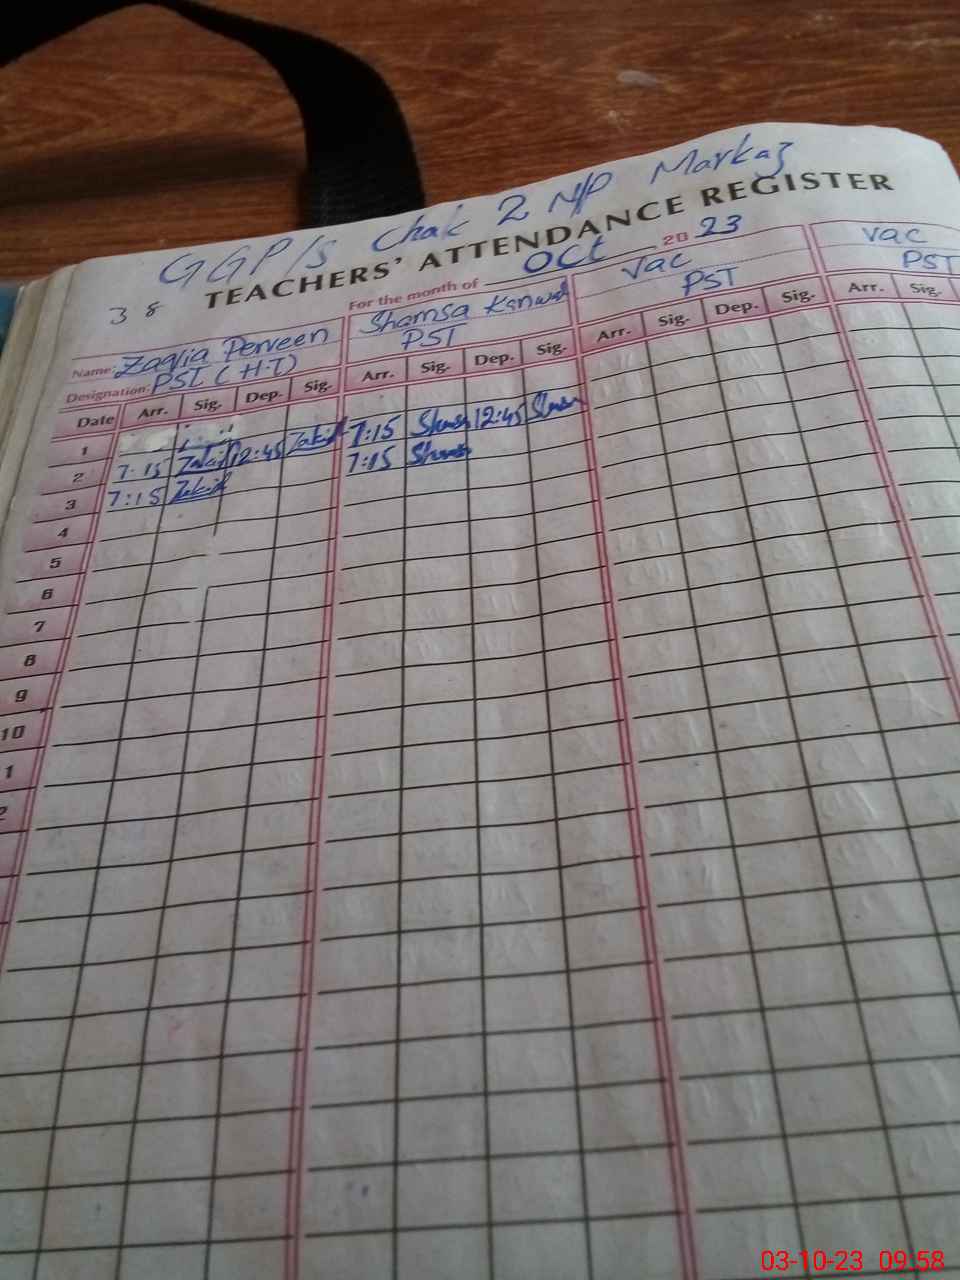 GGP/S Chak 2 N/P Markaz
TEACHERS' ATTENDANCE REGISTER
38
For the month of Oct 2023
Name: Zaqia Perveen Shamsa Kanwal Vac Vac
Designation: PST (H.T) PST PST PST
Date Arr. Sig. Dep. Sig. Arr. Sig. Dep. Sig. Arr. Sig. Dep. Sig. Arr. Sig.
1
2 7:15 Zakia 12:45 Zakia 7:15 Shamsa 12:45 Shamsa
3 7:15 Zakia 7:15 Shamsa
4
5
6
7
8
9
10
1
2
03-10-23 09.58